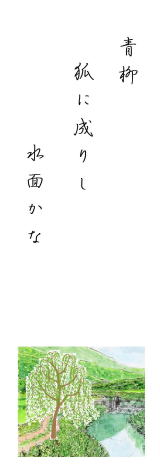 青柳
狐に成りし
水面かな